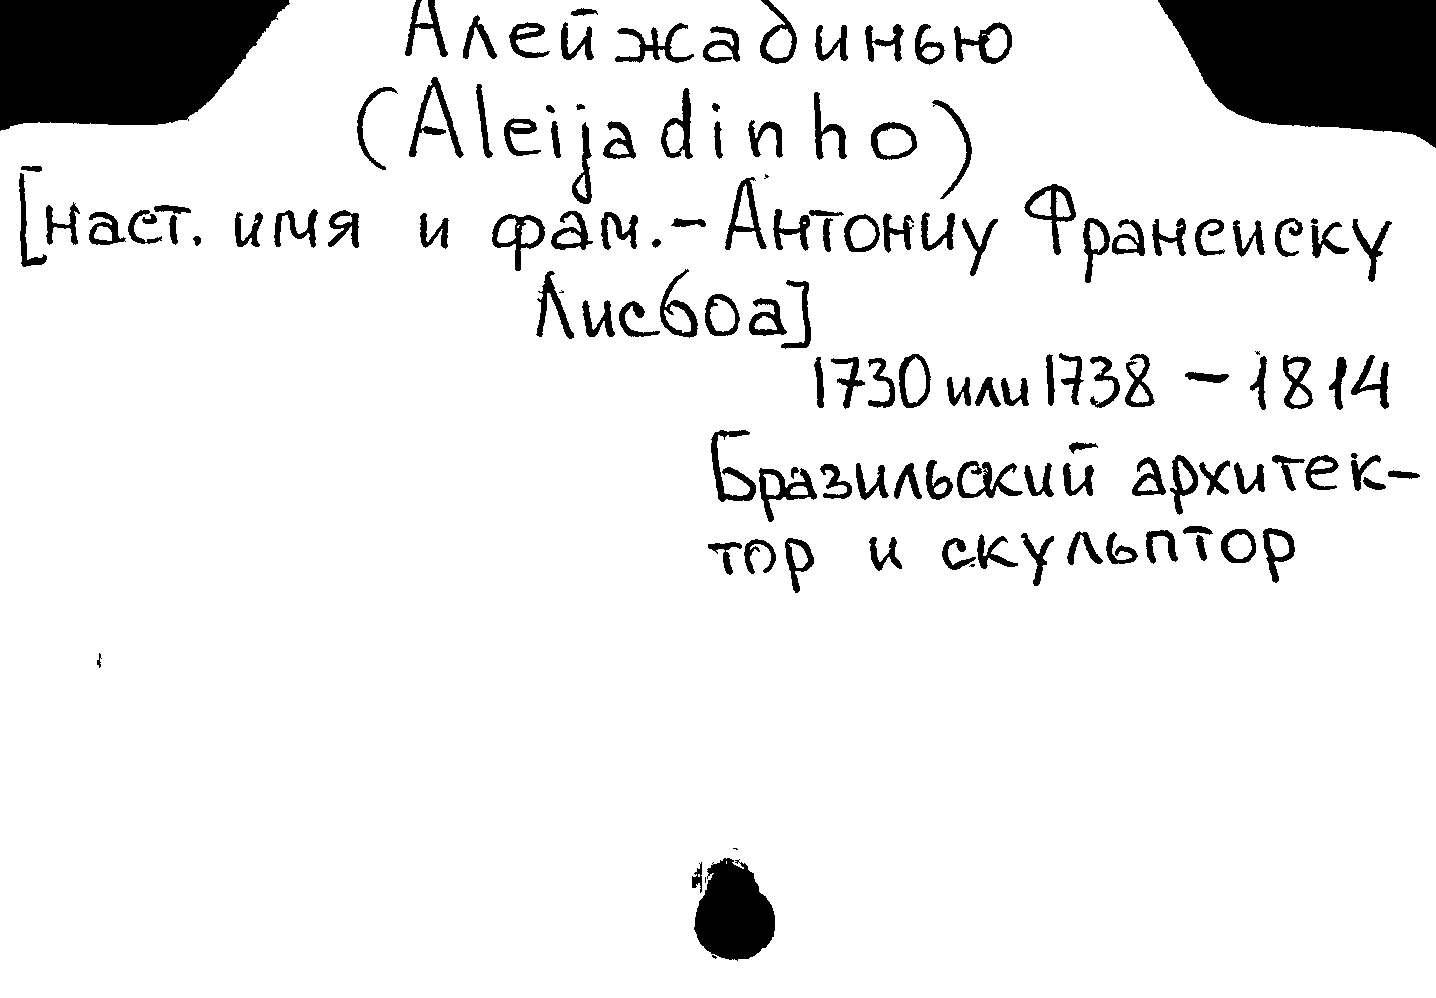 Алейжадинью
(Aleijadinho)
[наст. имя и фам.-Антониу Франсиску
Лисбоа]
1730 или 1738 - 1814
Бразильский архитек-
тор и скульптор